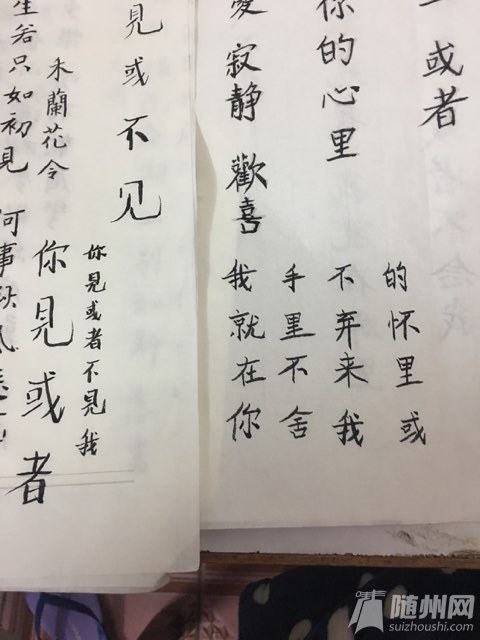 或者
你的心里
愛寂静歡喜
我就在你
手里不舍
不弃来我
的怀里或
見或不见
你見或者不見我
你見或者
木蘭花令
生若只如初見何事秋风
随州网
suizhoushi.com